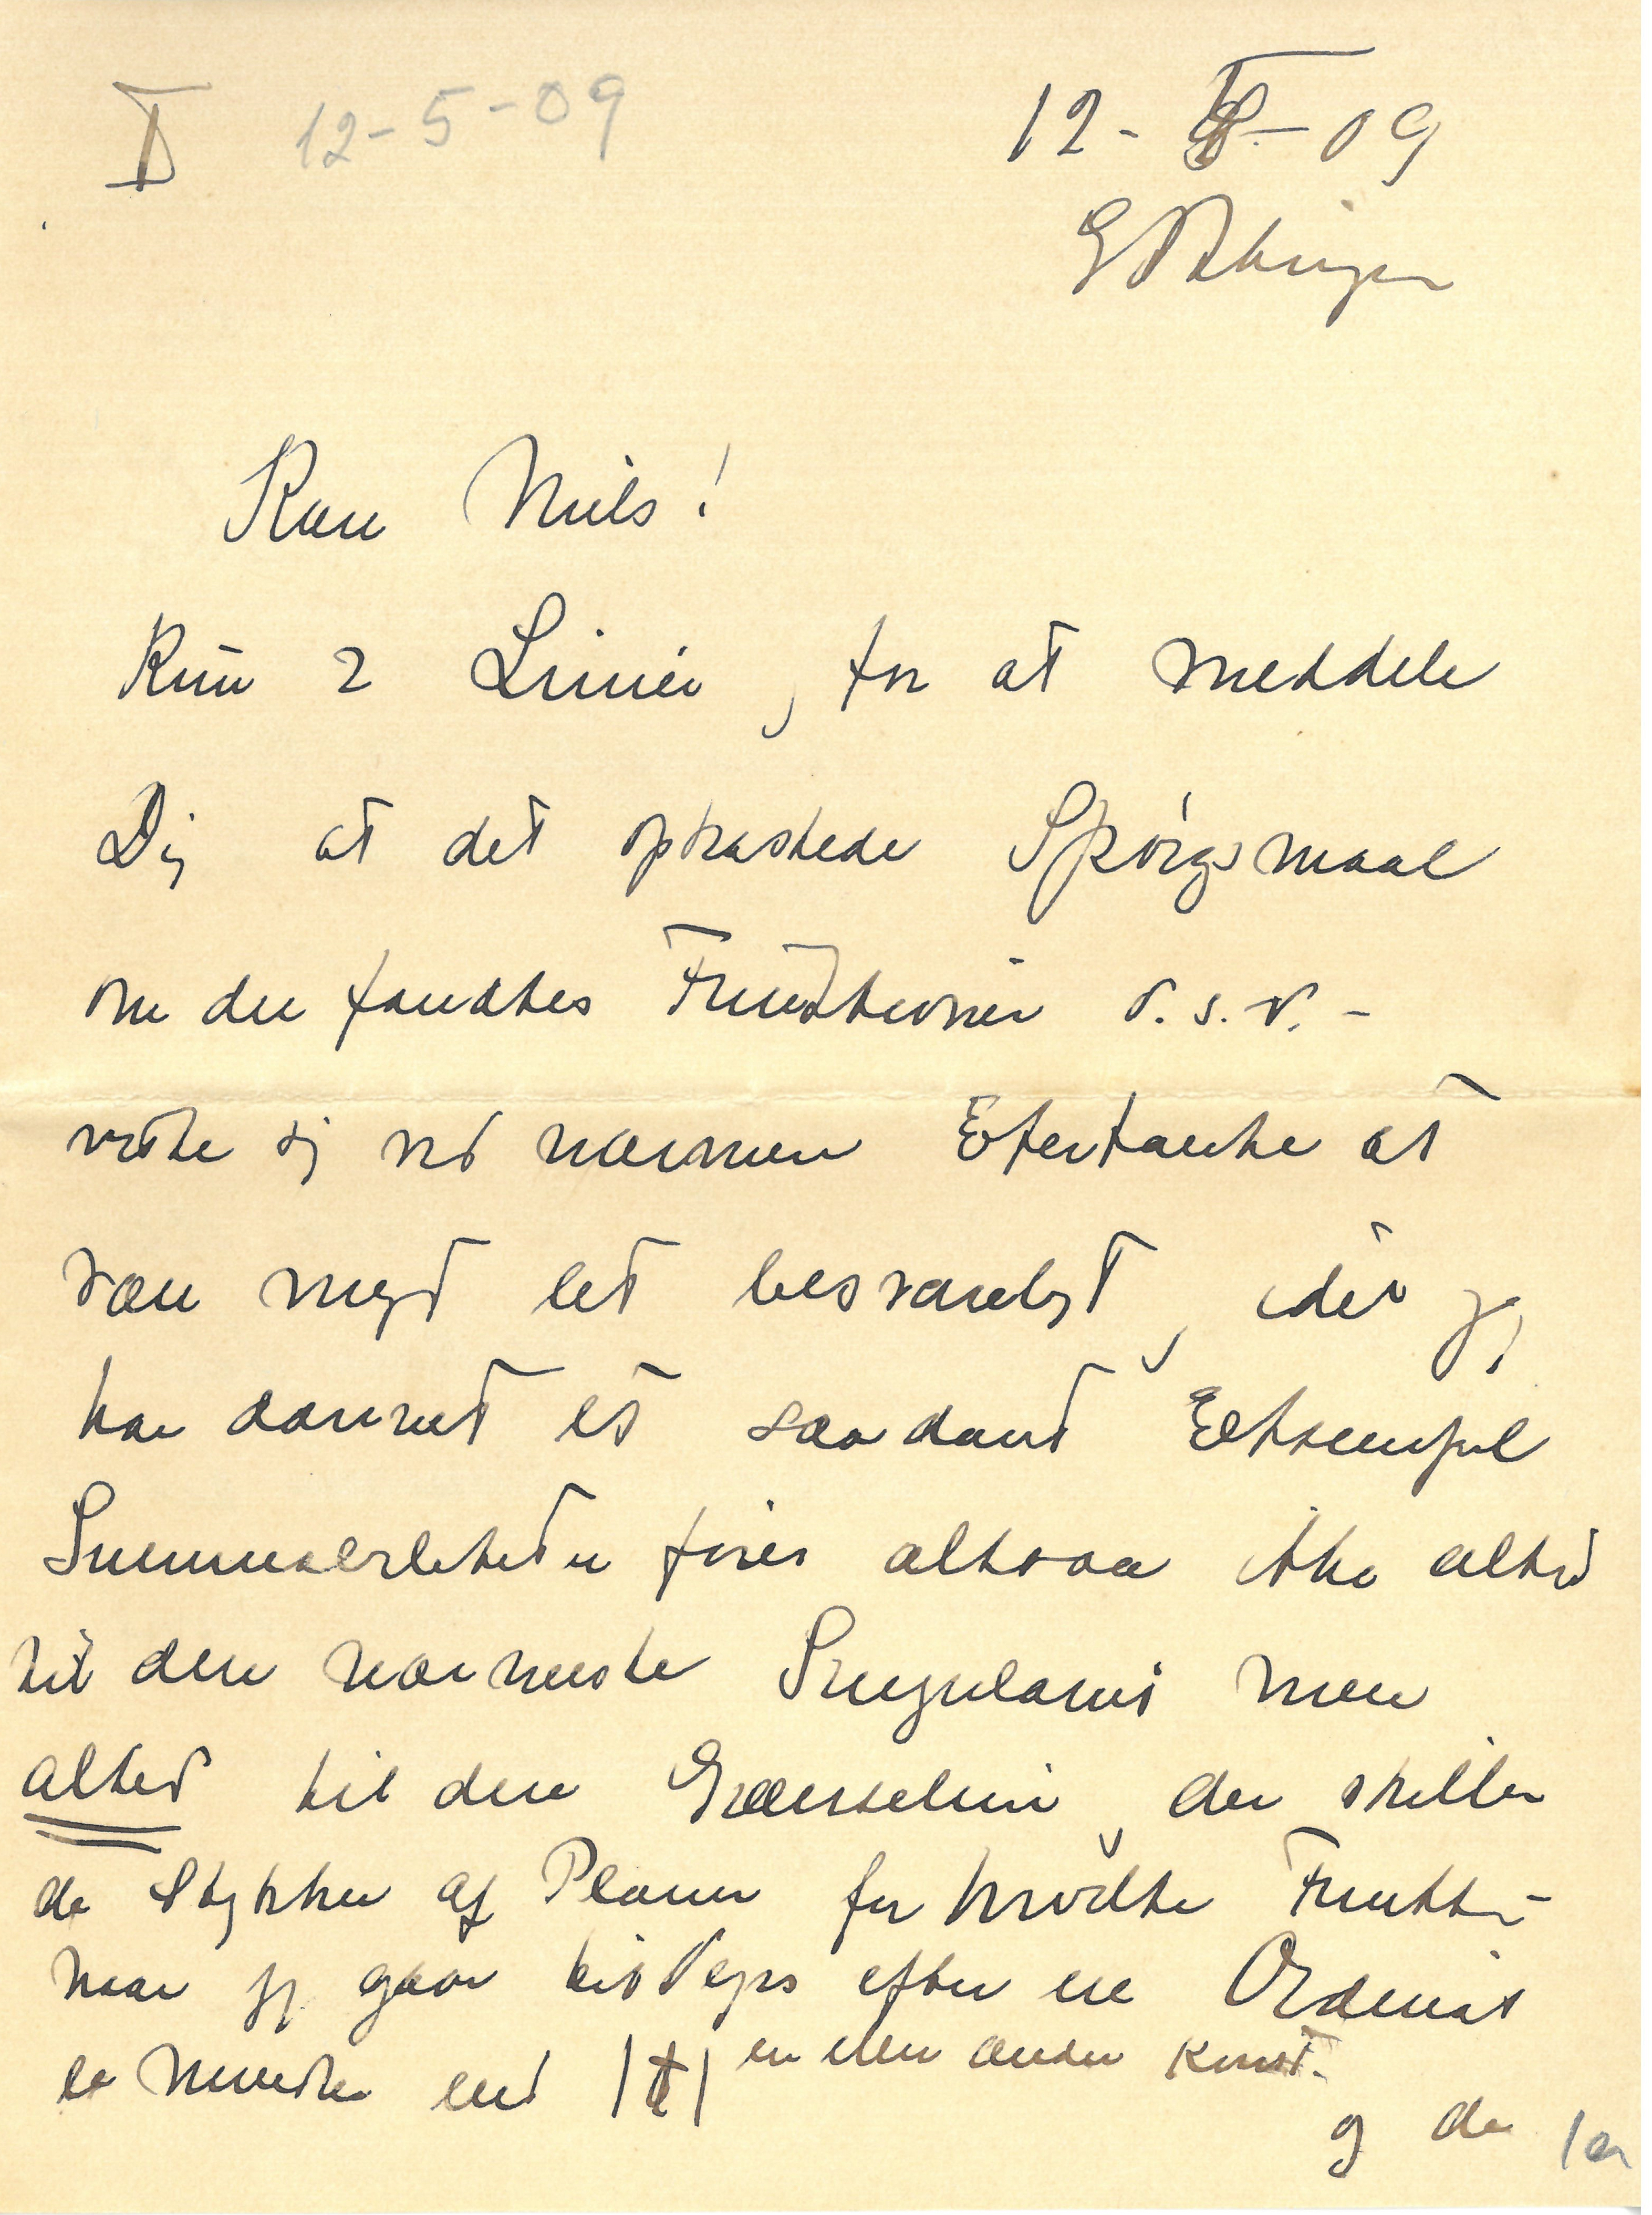 I 12-5-09
12-V-09
Göttingen
Kære Niels!
Kun 2 Linier, for at meddele
Dig at det opkastede Spørgsmaal
om der fandtes Funktioner o.s.v. -
viste sig ved nærmere Eftertanke at
være meget let besvareligt, idet jeg
har dannet et saadant Eksempel
Summabiliteten fører altsaa ikke altid
til den nærmeste Singularit men
altid til den Grænselinie, der skiller
de Stykker af Planen for hvilke Funkt-
naar jeg gaar tilvejrs efter en Ordinat
er mindre end |t| en eller anden Konst.
og de